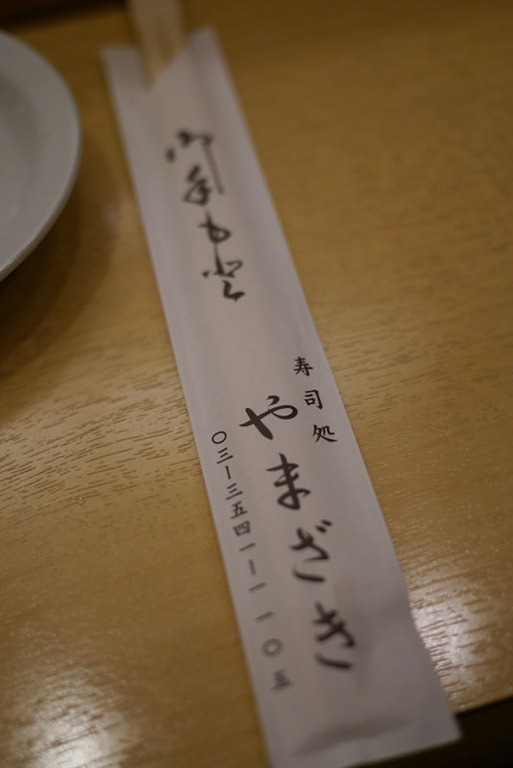 御手もと
寿司処
やまざき
〇三ー三五四一ー一一〇三